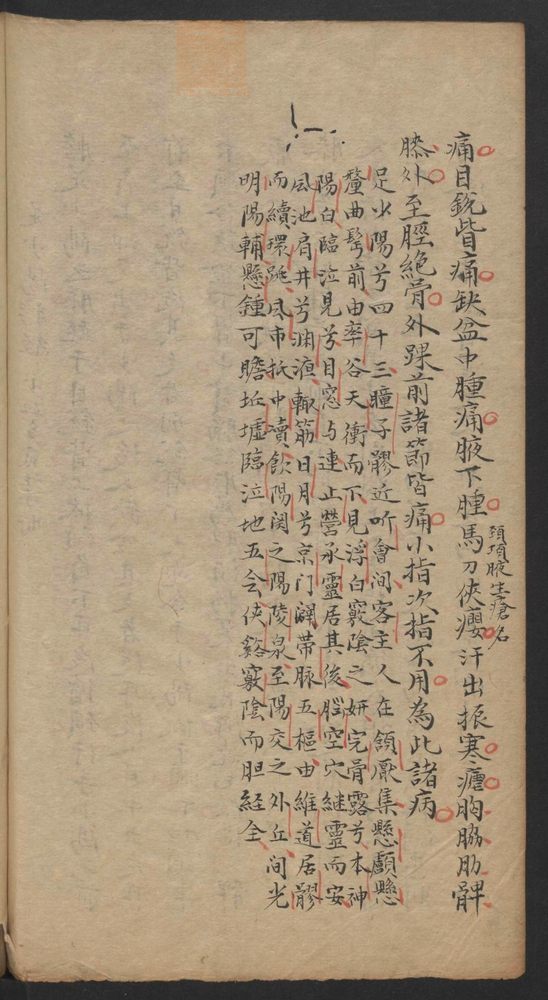 痛目銳眥痛缺盆中腫痛腋下腫馬刀俠癭汗出振寒瘧胸脇肋髀
頚項腋生瘡名
膝外至脛絕骨外踝前諸節皆痛小指次指不用為此諸病
足少陽兮四十三瞳子髎近听會间客主人在頷厭集懸顱懸
釐曲鬂前由率谷天衝而下見浮白竅陰之妍完骨露兮本神
陽白臨泣見兮目窓与連止營承靈居其後腦空穴継靈而安
風池肩井兮渊液輙筋日月兮京门闢帯脉五樞由維道居髎
而續環跳風市抵中瀆飲陽関之陽陵泉至陽交之外丘间光
明陽輔懸鍾可瞻坵墟臨泣地五会俠谿竅陰而胆経全